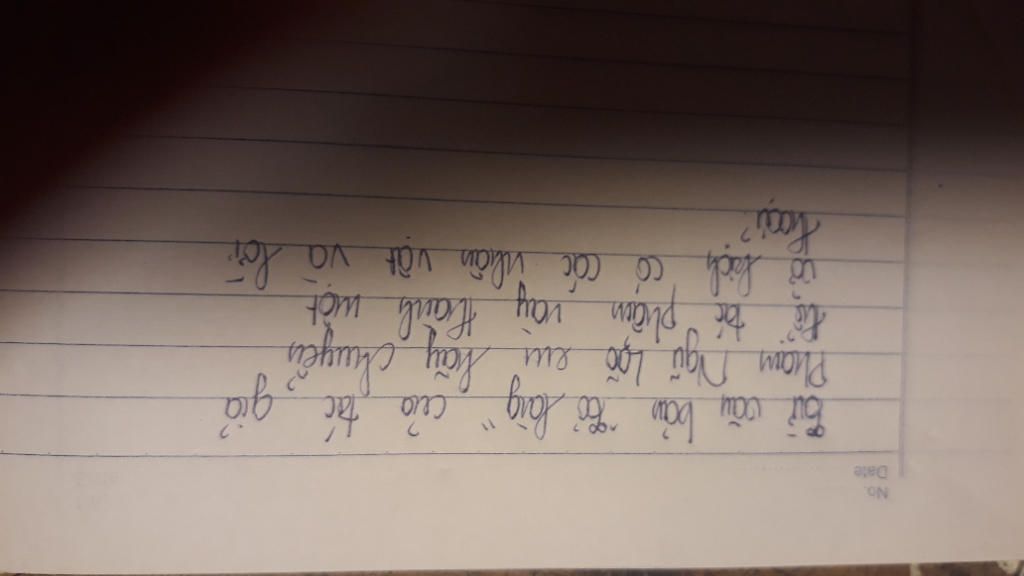 No.
Date
Từ văn bản "Tỏ lòng" của tác giả
Phạm Ngũ Lão em hãy chuyển
thể tác phẩm này thành một
vở kịch có các nhân vật và lời
thoại?